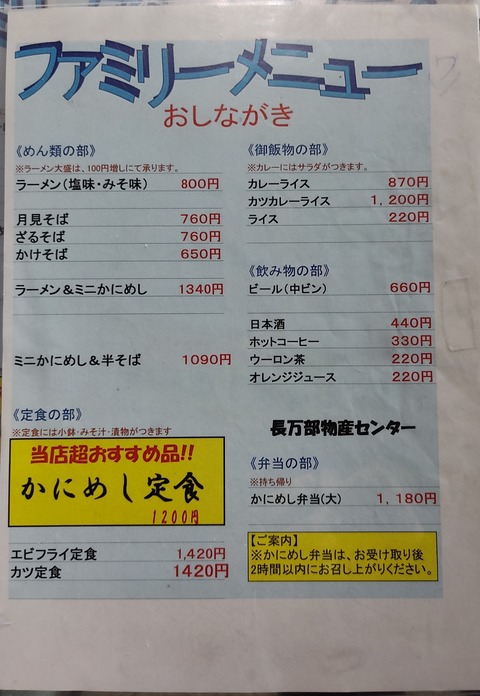 ファミリーメニュー
おしながき
《めん類の部》
※ラーメン大盛は、100円増しにて承ります。
ラーメン（塩味・みそ味） 800円
月見そば 760円
ざるそば 760円
かけそば 650円
ラーメン＆ミニかにめし 1340円
ミニかにめし＆半そば 1090円
《定食の部》
※定食には小鉢・みそ汁・漬物がつきます
当店超おすすめ品!!
かにめし定食
1200円
エビフライ定食 1,420円
カツ定食 1420円
《御飯物の部》
※カレーにはサラダがつきます。
カレーライス 870円
カツカレーライス 1,200円
ライス 220円
《飲み物の部》
ビール（中ビン） 660円
日本酒 440円
ホットコーヒー 330円
ウーロン茶 220円
オレンジジュース 220円
長万部物産センター
《弁当の部》
※持ち帰り
かにめし弁当(大) 1,180円
【ご案内】
※かにめし弁当は、お受け取り後
2時間以内にお召し上がりください。